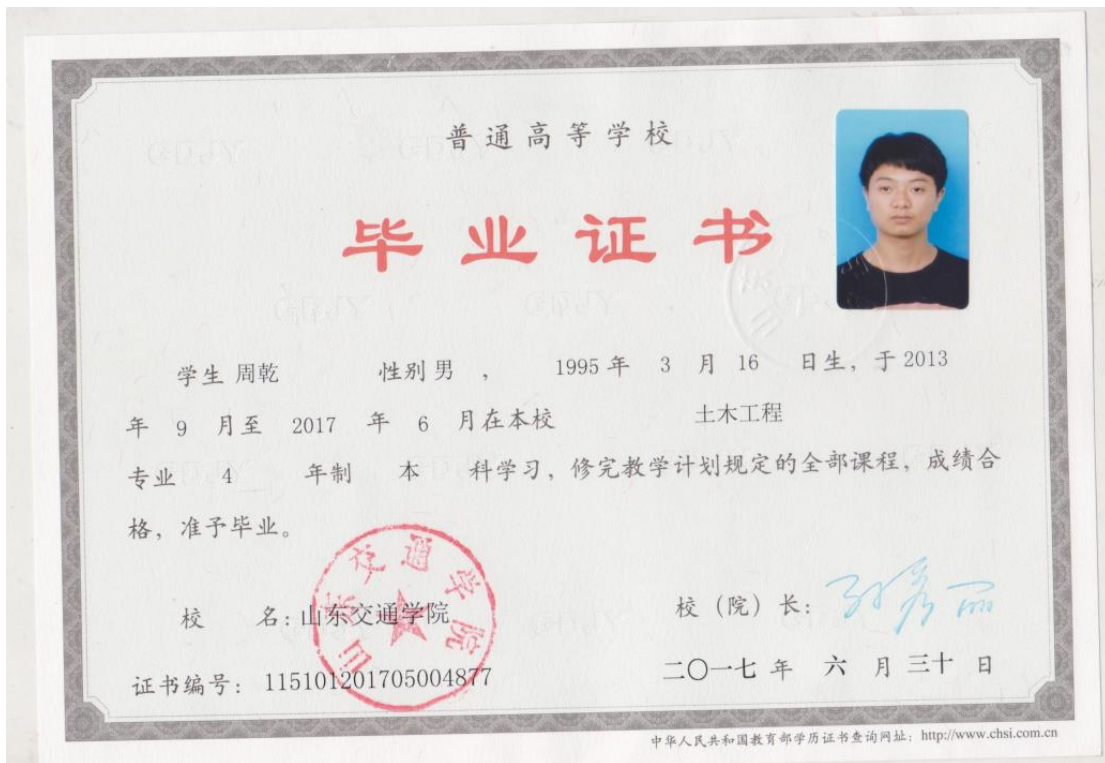 普通高等学校
毕业证书
学生 周乾 性别 男 , 1995 年 3 月 16 日生, 于 2013
年 9 月至 2017 年 6 月在本校 土木工程
专业 4 年制 本 科学习, 修完教学计划规定的全部课程, 成绩合
格, 准予毕业。
山东交通学院
校 名: 山东交通学院
校 (院) 长:
证书编号: 115101201705004877
二〇一七 年 六 月 三十 日
中华人民共和国教育部学历证书查询网址: http://www.chsi.com.cn